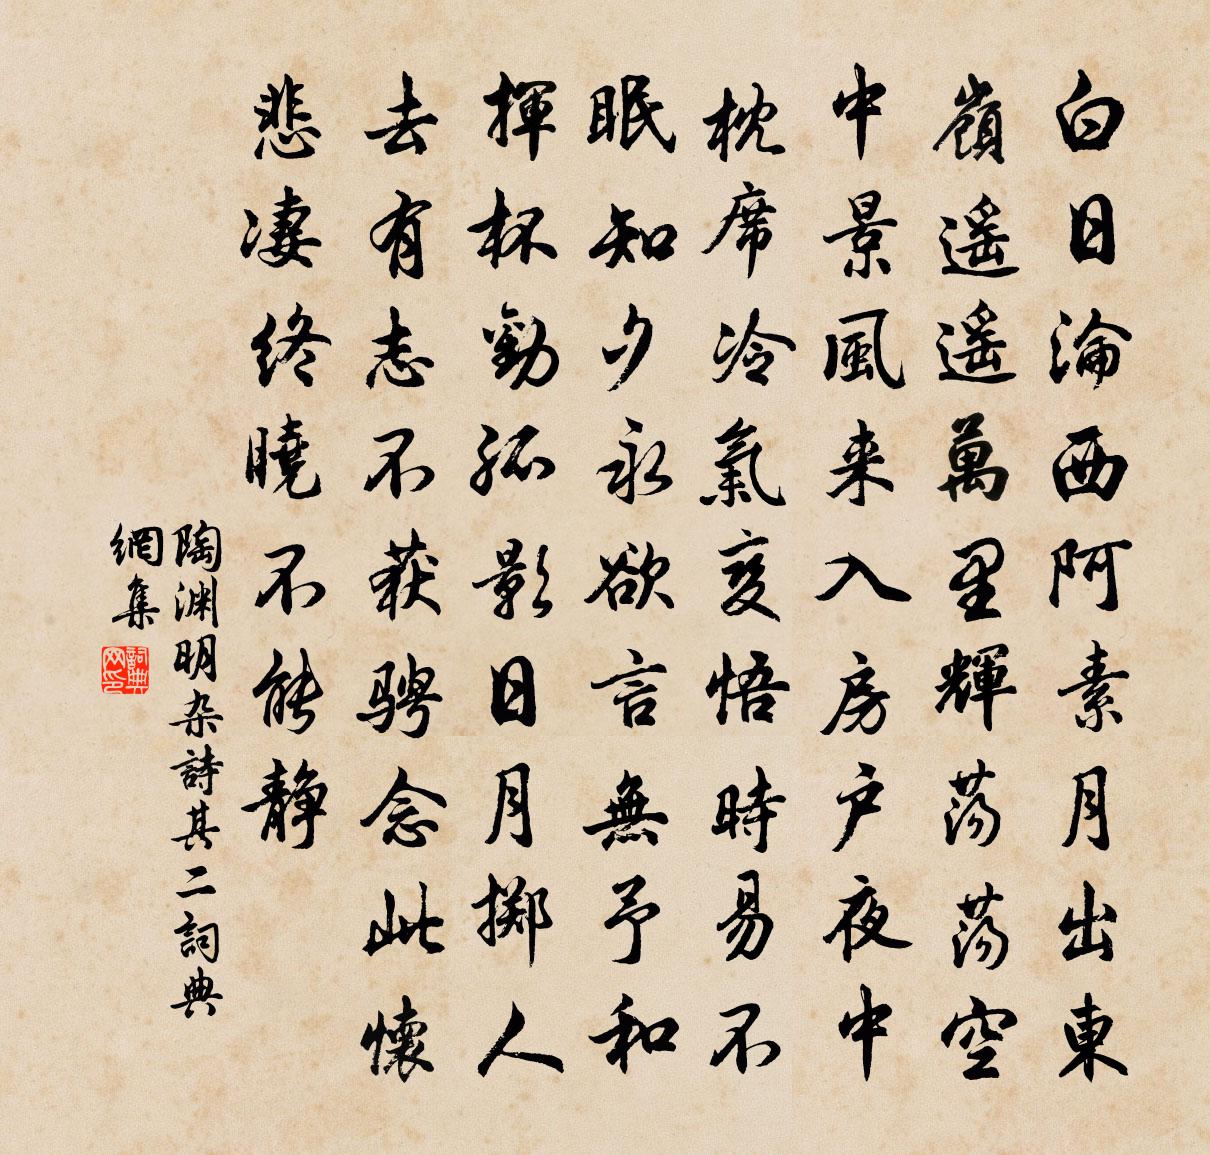 白日淪西阿素月出東
嶺遥遥萬里輝荡荡空
中景風来入房户夜中
枕席冷氣変悟時易不
眠知夕永欲言無予和
揮杯勸孤影日月掷人
去有志不获骋念此懷
悲凄终曉不能静
陶渊明杂詩其二詞典
網集
詞典
网印